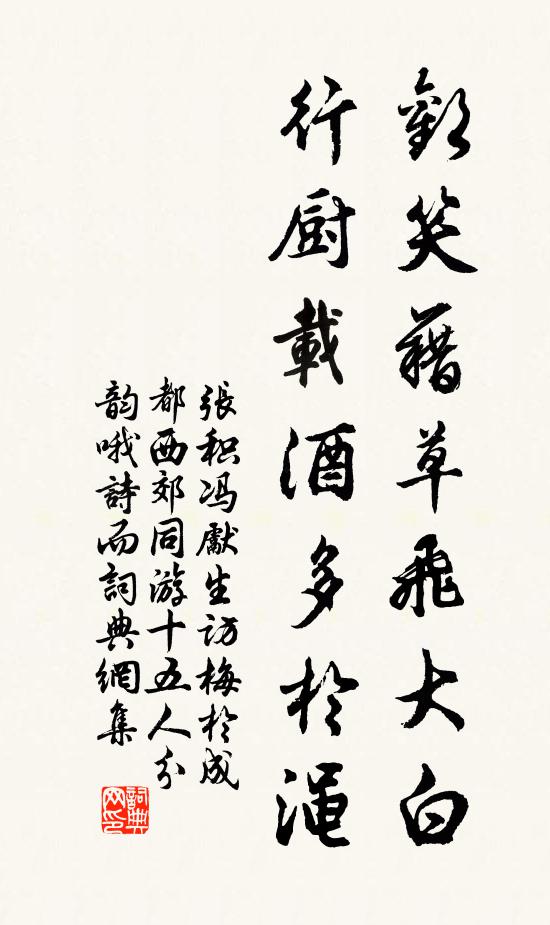 歡笑藉草飛大白
行厨載酒多於澠
張积冯獻生访梅於成
都西郊同游十五人分
韵哦詩而詞典網集
詞典网印